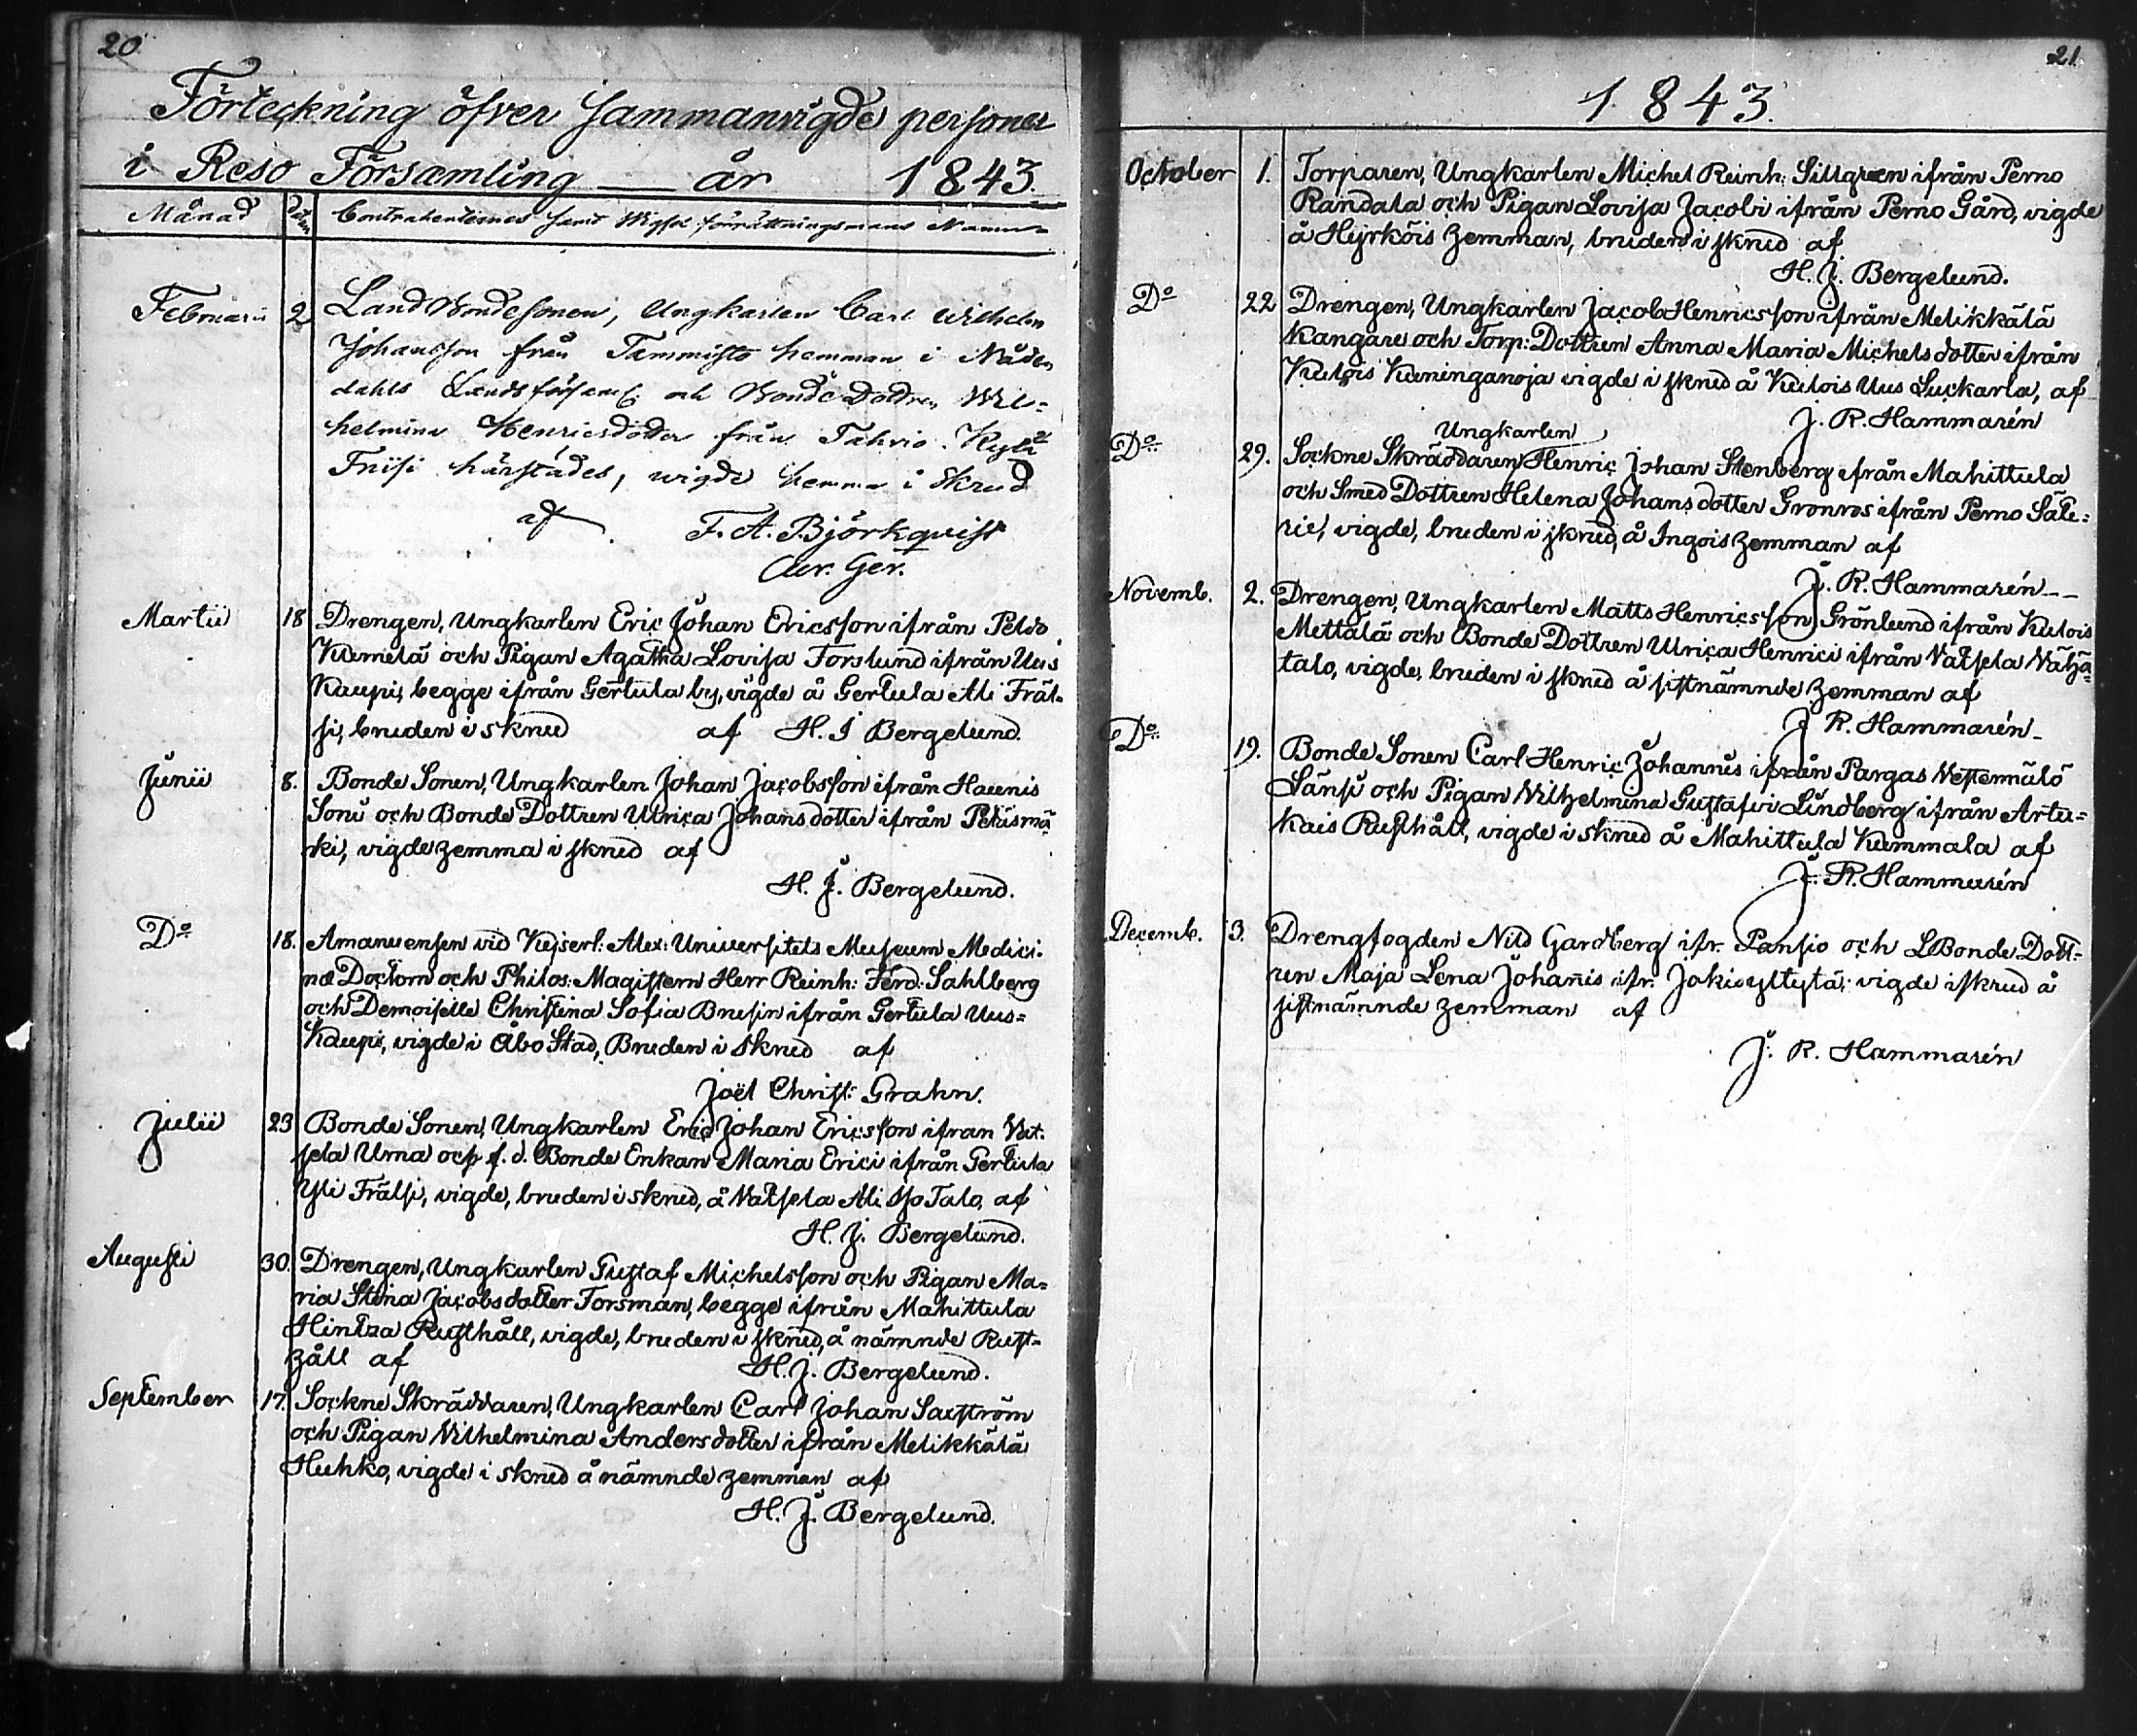 20.
Förteckning öfver Sammanvigde personer
i Reso Församling — år 1843.
Månad Datum Contrahenternes samt Wigsel förrättningsmans Namn
Februarii 2 Land Bondesonen, Ungkarlen Carl Wilhelm
Johansson från Tammisto hemman i Nåden
dahls Landsförsaml. och Bonde Dottren Wil=
helmina Henricsdotter från Tahvio Kylä
Friisi härstädes, wigde hemma i Skrud
af F. A. Björkqvist
Cur. Ger.
Martii 18 Drengen, Ungkarlen Eric Johan Ericsson ifrån Peldo
Kumelä och Pigan Agatha Lovisa Forslund ifrån Uus
Kaupi, begge ifrån Gertula by, vigde å Gertula Ali Fräl-
si, bruden i skrud af H. J Bergelund.
Junii 8. Bonde Sonen, Ungkarlen Johan Jacobsson ifrån Haunis
Soini och Bonde Dottren Ulrica Johansdotter ifrån Petäismä
ki, vigde hemma i skrud af
H. J. Bergelund.
Do 18. Amanuensen vid Kejserl: Alex: Universitets Museum Medici-
næ Doctorn och Philos: Magistern Herr Reinh: Ferd: Sahlberg
och Demoiselle Christina Sofia Brusin ifrån Gertula Uus=
Kaupi, vigde i Åbo Stad, Bruden i skrud af
Joël Christ: Grahn.
Julii 23 Bonde Sonen, Ungkarlen Eric Johan Ericsson ifrån Vat-
sela Uma och f. d. Bonde Enkan Maria Erici ifrån Gertula
Yli Frälsi, vigde, bruden i skrud, å Vatsela Ali Iso Talo, af
H. J. Bergelund.
Augusti 30. Drengen, Ungkarlen Gustaf Michelsson och Pigan Ma=
ria Stina Jacobsdotter Forsman, begge ifrån Mahittula
Hintsa Rusthåll, vigde, bruden i skrud, å nämnde Rust=
håll af H. J. Bergelund.
September 17. Sockne Skräddaren, Ungkarlen Carl Johan Saxström
och Pigan Vilhelmina Andersdotter ifrån Melikkälä
Huhko, vigde i skrud å nämnde hemman af
H. J. Bergelund.
21.
1843.
October 1. Torparen, Ungkarlen Michel Reinh: Sillgren ifrån Perno
Randala och Pigan Lovisa Jacobi ifrån Perno Gård, vigde
å Hyrköis hemman, bruden i skrud af
H. J. Bergelund.
Do 22 Drengen, Ungkarlen Jacob Henricsson ifrån Melikkälä
Kangare och Torp: Dottren Anna Maria Michelsdotter ifrån
Kulois Kuninganoja vigde i skrud å Kulois Uus Luckarla, af
J. R. Hammarén
Ungkarlen
Do 29. Sockne Skräddaren Henric Johan Stenberg ifrån Mahittula
och Smed Dottren Helena Johansdotter Gronros ifrån Perno Säte=
rie, vigde, bruden i skrud, å Ingois hemman af
J. R. Hammarén
Novemb. 2. Drengen, Ungkarlen Matts Henricsson Grönlund ifrån Kulois
Mettälä och Bonde Dottren Ulrica Henrici ifrån Vatsela Vähä=
talo, vigde, bruden i skrud å sistnämnde hemman af
J R. Hammarén
Do 19. Bonde Sonen Carl Henric Johannis ifrån Pargas Vestermälö
Länsi och Pigan Vilhelmina Gustafsvi Lindberg ifrån Artu=
kais Rusthåll, vigde i skrud å Mahittula Kummala af
J. R. Hammarén
Decemb. 3. Drengfogden Nils Gardberg ifr. Pansio och LBonde Dott-
ren Maja Lena Johannis ifr. Jokisyltylä, vigde i skrud å
sistnämnde hemman af
J. R. Hammarén